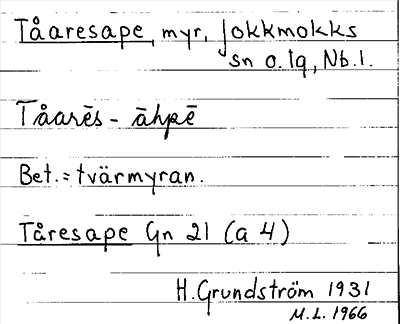 Tåaresape, myr, Jokkmokks
sn o. tg, Nb. l.
Tåarēs - āhpē
Bet. = tvärmyran.
Tåresape Gn 21 (a 4)
H. Grundström 1931
M.L. 1966